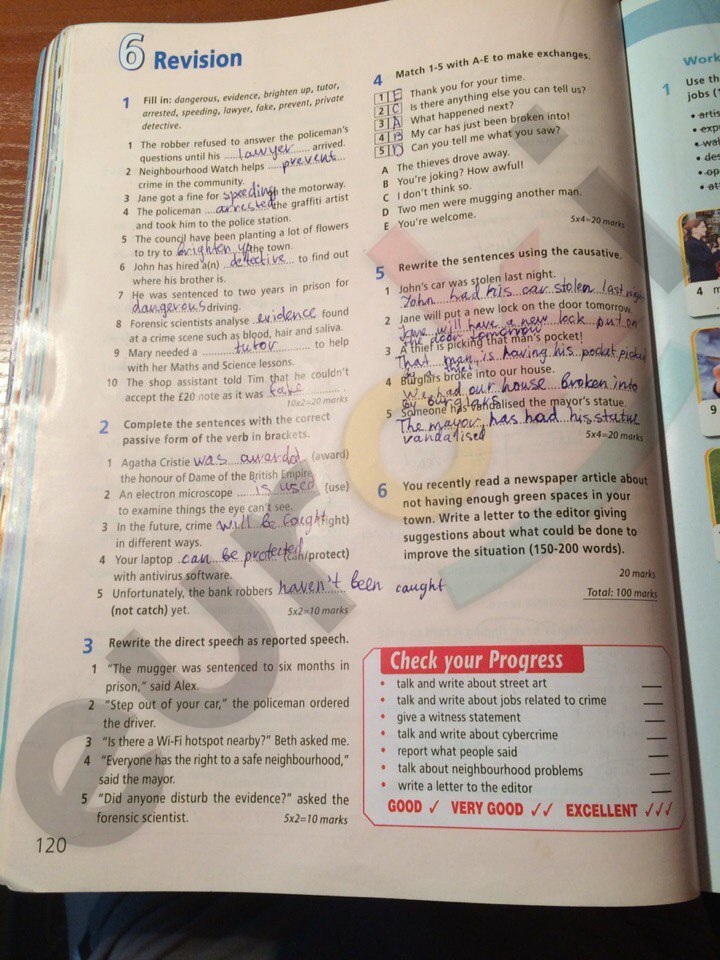 6 Revision
1 Fill in: dangerous, evidence, brighten up, tutor,
arrested, speeding, lawyer, fake, prevent, private
detective.
1 The robber refused to answer the policeman's
questions until his lawyer arrived.
2 Neighbourhood Watch helps prevent
crime in the community.
3 Jane got a fine for speeding on the motorway.
4 The policeman arrested the graffiti artist
and took him to the police station.
5 The council have been planting a lot of flowers
to try to brighten up the town.
6 John has hired a(n) detective to find out
where his brother is.
7 He was sentenced to two years in prison for
dangerous driving.
8 Forensic scientists analyse evidence found
at a crime scene such as blood, hair and saliva.
9 Mary needed a tutor to help
with her Maths and Science lessons.
10 The shop assistant told Tim that he couldn't
accept the £20 note as it was fake.
10x2=20 marks
2 Complete the sentences with the correct
passive form of the verb in brackets.
1 Agatha Cristie was awarded (award)
the honour of Dame of the British Empire.
2 An electron microscope is used (use)
to examine things the eye can't see.
3 In the future, crime will be fought (fight)
in different ways.
4 Your laptop can be protected (can/protect)
with antivirus software.
5 Unfortunately, the bank robbers haven't been caught
(not catch) yet.
5x2=10 marks
3 Rewrite the direct speech as reported speech.
1 "The mugger was sentenced to six months in
prison," said Alex.
2 "Step out of your car," the policeman ordered
the driver.
3 "Is there a Wi-Fi hotspot nearby?" Beth asked me.
4 "Everyone has the right to a safe neighbourhood,"
said the mayor.
5 "Did anyone disturb the evidence?" asked the
forensic scientist.
5x2=10 marks
120
4 Match 1-5 with A-E to make exchanges.
1 E Thank you for your time.
2 C Is there anything else you can tell us?
3 A What happened next?
4 B My car has just been broken into!
5 D Can you tell me what you saw?
A The thieves drove away.
B You're joking? How awful!
C I don't think so.
D Two men were mugging another man.
E You're welcome.
5x4=20 marks
5 Rewrite the sentences using the causative.
1 John's car was stolen last night.
John had his car stolen last night
2 Jane will put a new lock on the door tomorrow.
Jane will have a new lock put on
the door tomorrow
3 A thief is picking that man's pocket!
That man is having his pocket picked
by a thief
4 Burglars broke into our house.
We had our house broken into
by burglars
5 Someone has vandalised the mayor's statue.
The mayor has had his statue
vandalised
5x4=20 marks
6 You recently read a newspaper article about
not having enough green spaces in your
town. Write a letter to the editor giving
suggestions about what could be done to
improve the situation (150-200 words).
20 marks
Total: 100 marks
Check your Progress
• talk and write about street art
• talk and write about jobs related to crime
• give a witness statement
• talk and write about cybercrime
• report what people said
• talk about neighbourhood problems
• write a letter to the editor
GOOD ✓ VERY GOOD ✓✓ EXCELLENT ✓✓✓
Work
1 Use th
jobs (1
4 m
9